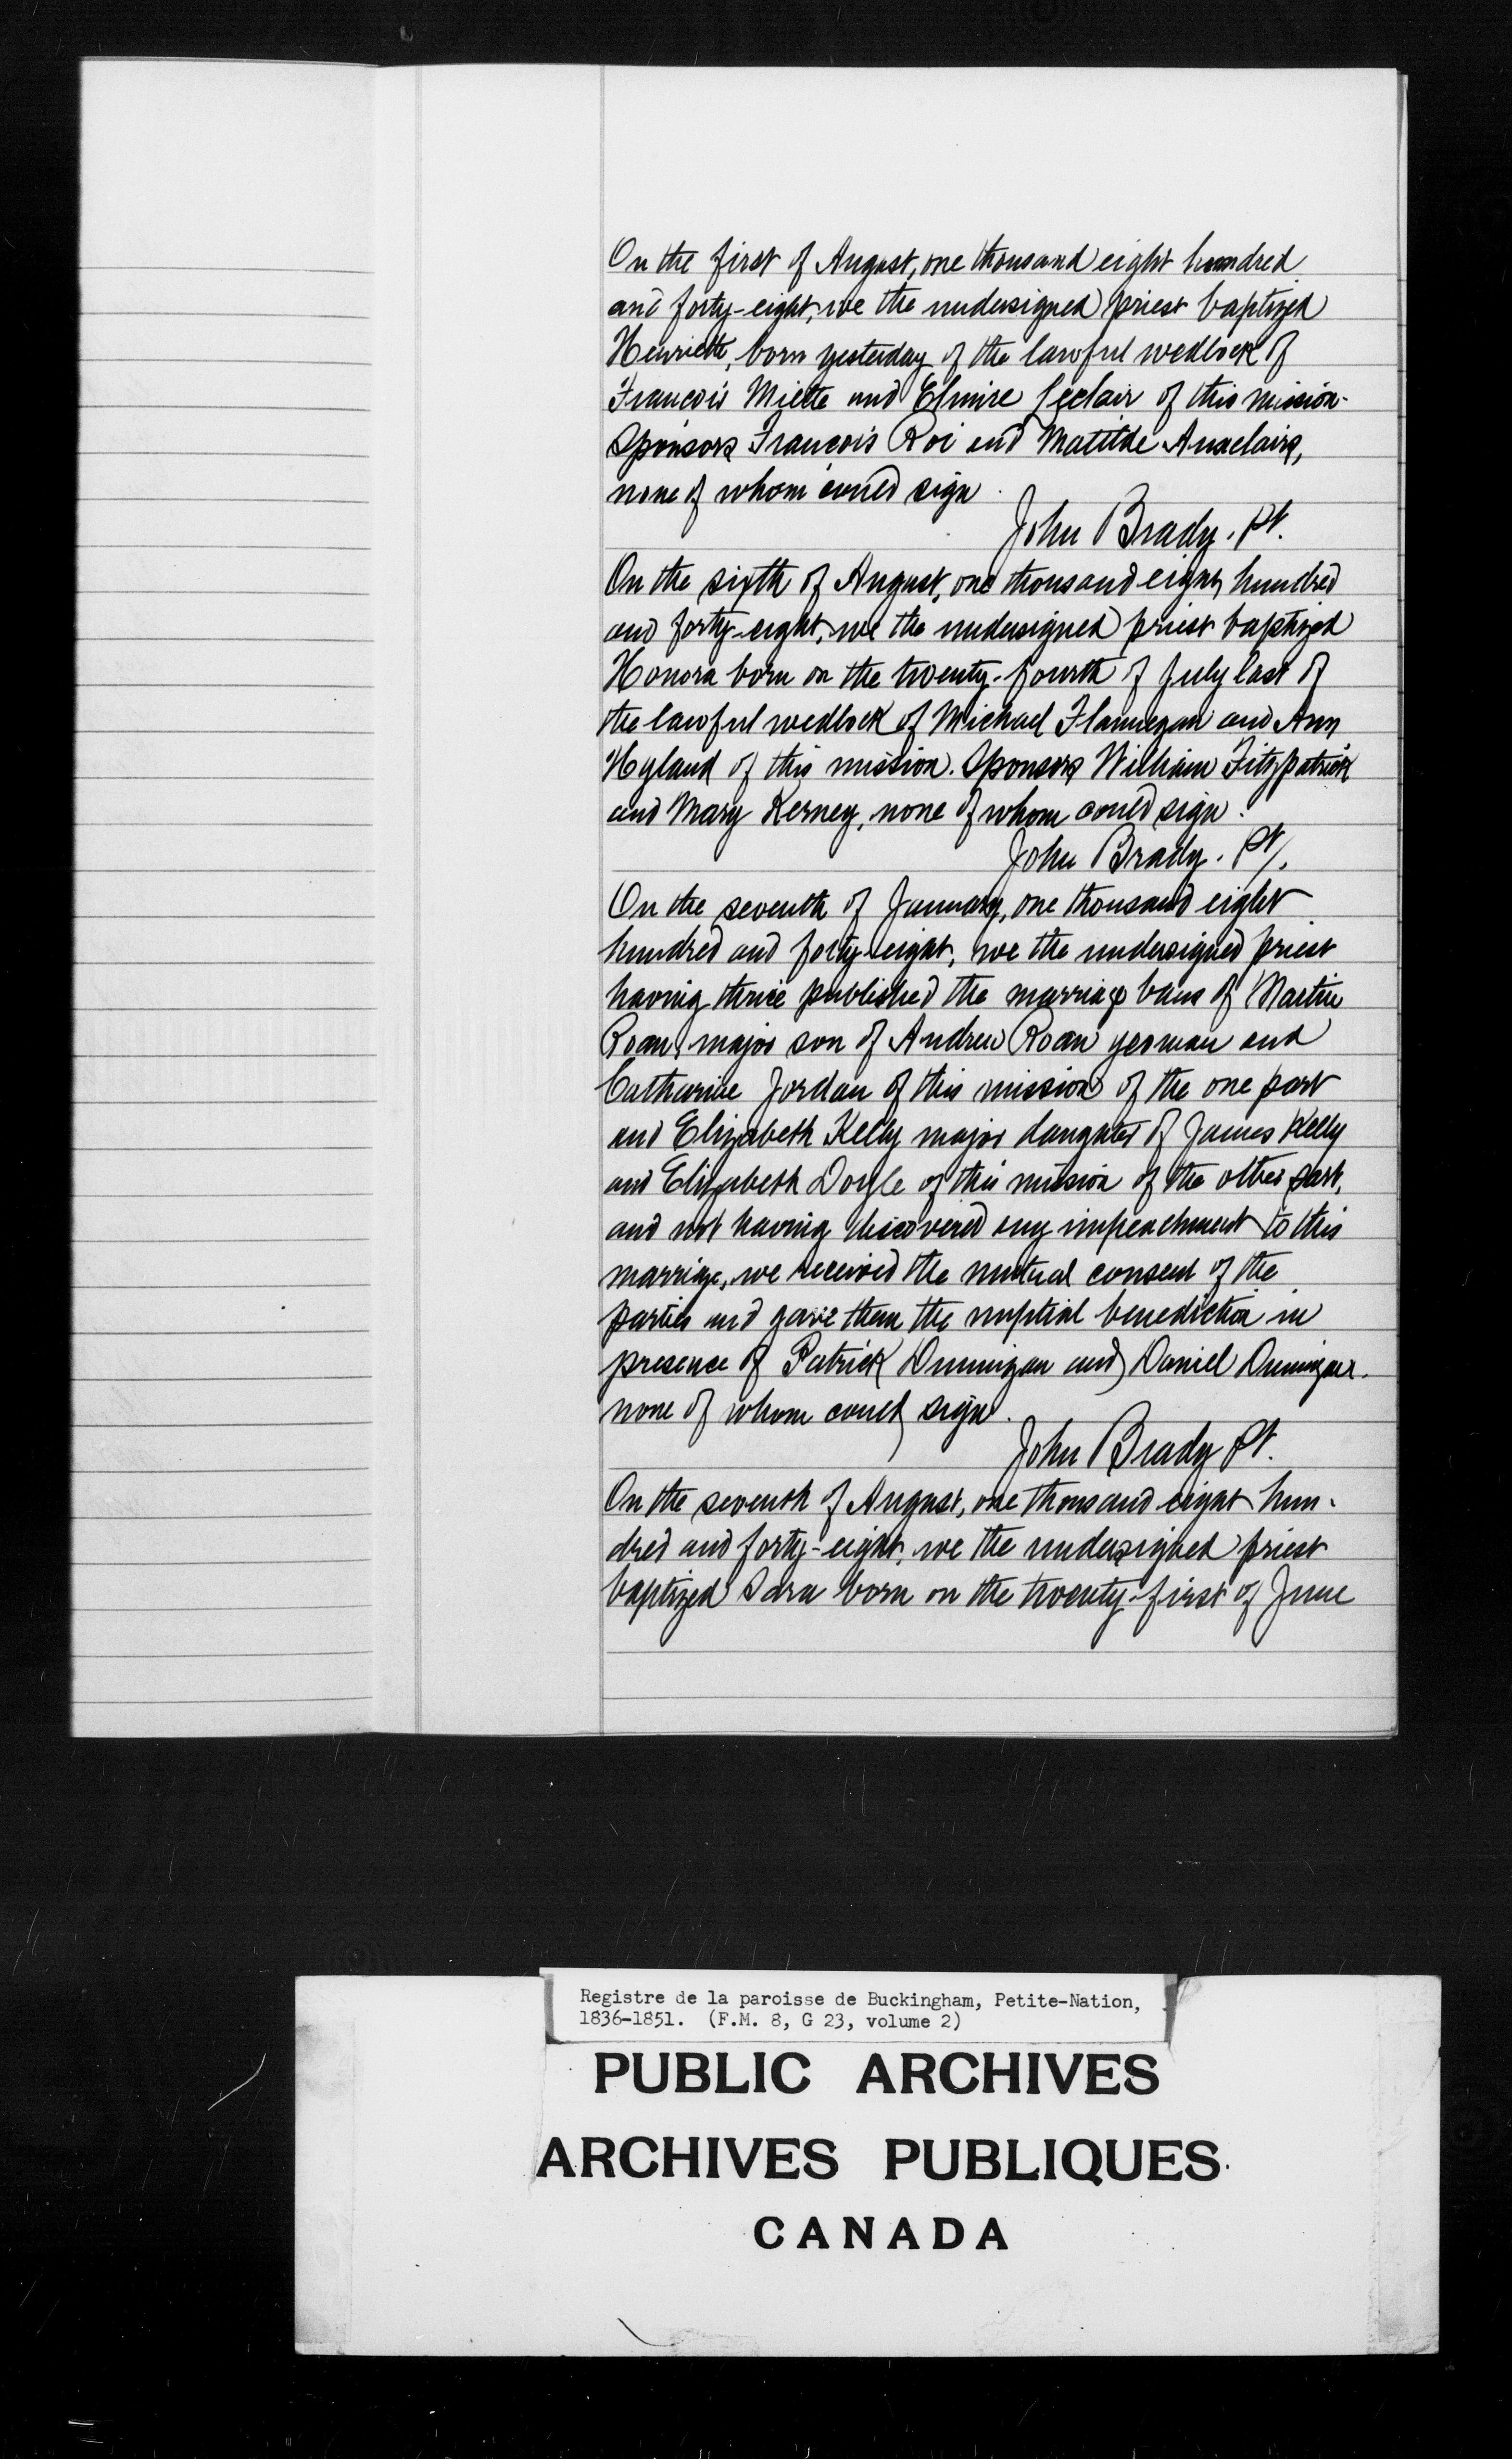 On the first of August, one thousand eight hundred
and forty-eight, we the undersigned priest baptized
Henriette, born yesterday of the lawful wedlock of
Francois Miette and Elmire Leclair of this mission.
Sponsors Francois Roi and Matilde Auxclairs,
none of whom could sign.
John Brady. Pt.
On the sixth of August, one thousand eight hundred
and forty-eight, we the undersigned priest baptized
Honora born on the twenty-fourth of July last of
the lawful wedlock of Michael Flannegan and Ann
Hyland of this mission. Sponsors William Fitzpatrick
and Mary Kerney, none of whom could sign.
John Brady. Pt.
On the seventh of January, one thousand eight
hundred and forty-eight, we the undersigned priest
having thrice published the marriage bans of Martin
Roan, major son of Andrew Roan yeoman and
Catharine Jordan of this mission of the one part
and Elizabeth Kelly major daughter of James Kelly
and Elizabeth Doyle of this mission of the other part,
and not having discovered any impeachment to this
marriage, we received the mutual consent of the
parties and gave them the nuptial benediction in
presence of Patrick Dunnigan and Daniel Dunnigan.
none of whom could sign.
John Brady Pt.
On the seventh of August, one thousand eight hun-
dred and forty-eight, we the undersigned priest
baptized Sara born on the twenty-first of June
Registre de la paroisse de Buckingham, Petite-Nation,
1836-1851. (F.M. 8, G 23, volume 2)
PUBLIC ARCHIVES
ARCHIVES PUBLIQUES
CANADA